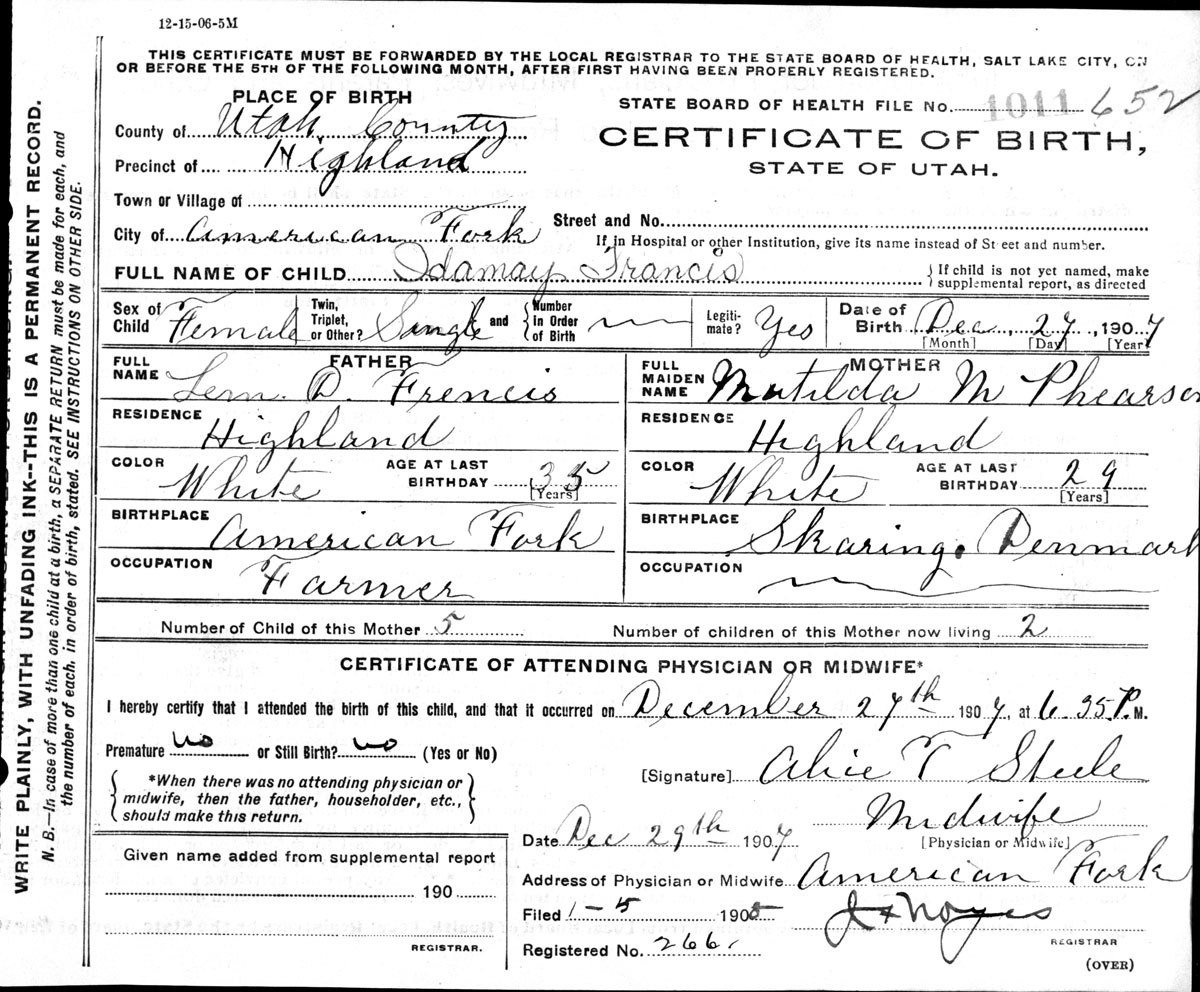 12-15-06-5M
THIS CERTIFICATE MUST BE FORWARDED BY THE LOCAL REGISTRAR TO THE STATE BOARD OF HEALTH, SALT LAKE CITY, ON
OR BEFORE THE 5TH OF THE FOLLOWING MONTH, AFTER FIRST HAVING BEEN PROPERLY REGISTERED.
WRITE PLAINLY, WITH UNFADING INK--THIS IS A PERMANENT RECORD.
N. B.—In case of more than one child at a birth, a SEPARATE RETURN must be made for each, and
the number of each, in order of birth, stated. SEE INSTRUCTIONS ON OTHER SIDE.
PLACE OF BIRTH
County of Utah County
Precinct of Highland
Town or Village of
City of American Fork
STATE BOARD OF HEALTH FILE No. 1011 652
CERTIFICATE OF BIRTH,
STATE OF UTAH.
Street and No.
If in Hospital or other Institution, give its name instead of Street and number.
FULL NAME OF CHILD Idamay Francis
If child is not yet named, make
supplemental report, as directed
Sex of Child Female
Twin, Triplet, or Other? Single and Number In Order of Birth
Legiti-mate? Yes
Date of Birth Dec, 27, 1907
[Month] [Day] [Year]
FATHER
FULL NAME Lem. D. Francis
RESIDENCE Highland
COLOR White AGE AT LAST BIRTHDAY 35 [Years]
BIRTHPLACE American Fork
OCCUPATION Farmer
MOTHER
FULL MAIDEN NAME Matilda M Phearson
RESIDENCE Highland
COLOR White AGE AT LAST BIRTHDAY 29 [Years]
BIRTHPLACE Skaring, Denmark
OCCUPATION
Number of Child of this Mother 5 Number of children of this Mother now living 2
CERTIFICATE OF ATTENDING PHYSICIAN OR MIDWIFE*
I hereby certify that I attended the birth of this child, and that it occurred on December 27th 1907, at 6 35 P. M.
Premature no or Still Birth? no (Yes or No)
*When there was no attending physician or
midwife, then the father, householder, etc.,
should make this return.
[Signature] Alice T Steele
Midwife
[Physician or Midwife]
Date Dec 29th 1907
Given name added from supplemental report
190
REGISTRAR.
Address of Physician or Midwife American Fork
Filed 1-5 1908
Registered No. 266
REGISTRAR
(OVER)